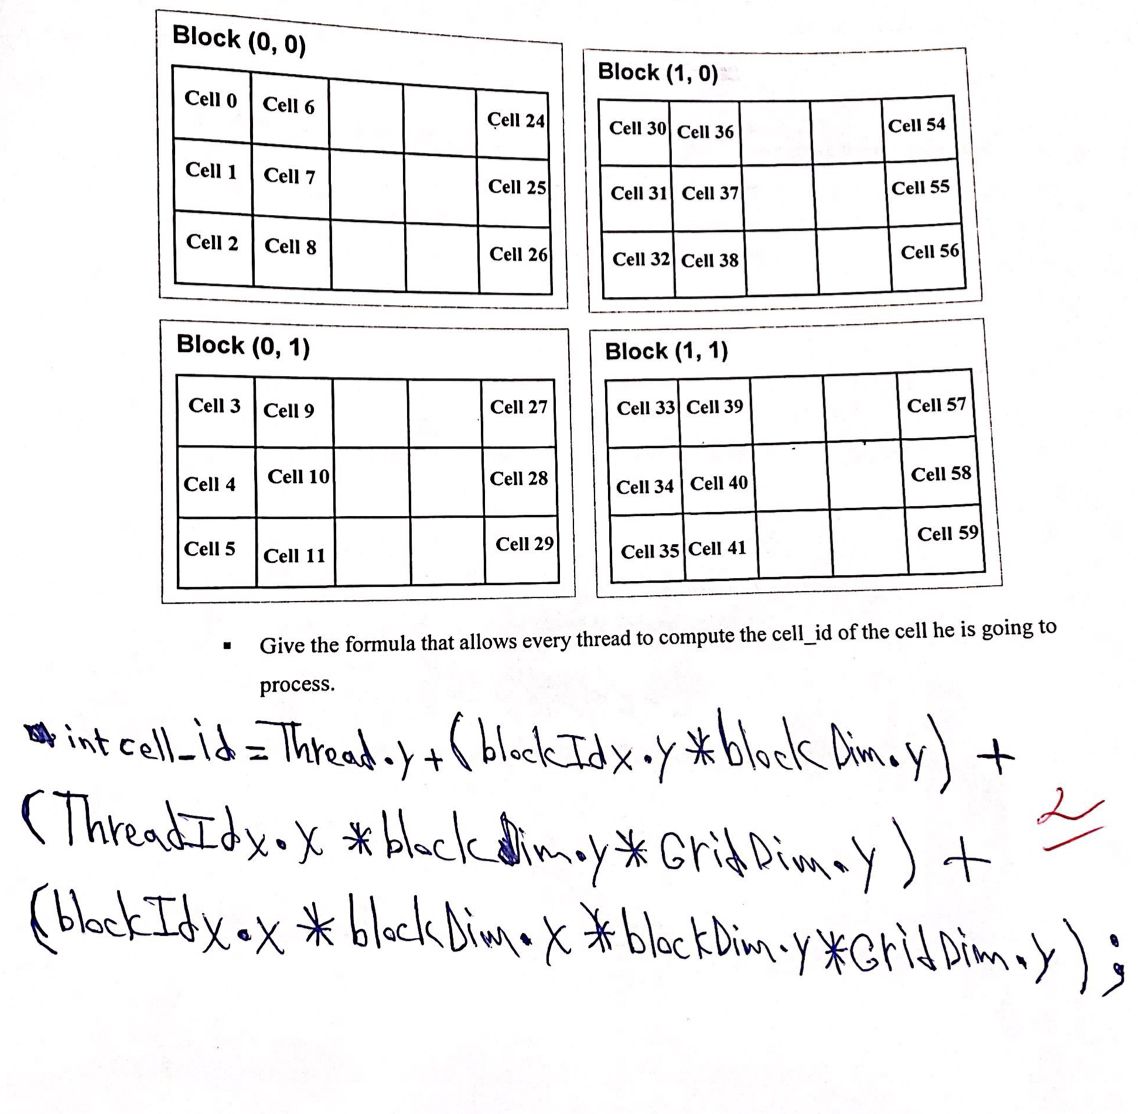 Block (0, 0)
Cell 0 Cell 6 Cell 24
Cell 1 Cell 7 Cell 25
Cell 2 Cell 8 Cell 26
Block (1, 0)
Cell 30 Cell 36 Cell 54
Cell 31 Cell 37 Cell 55
Cell 32 Cell 38 Cell 56
Block (0, 1)
Cell 3 Cell 9 Cell 27
Cell 4 Cell 10 Cell 28
Cell 5 Cell 11 Cell 29
Block (1, 1)
Cell 33 Cell 39 Cell 57
Cell 34 Cell 40 Cell 58
Cell 35 Cell 41 Cell 59
▪ Give the formula that allows every thread to compute the cell_id of the cell he is going to
process.
int cell_id = Thread.y + (blockIdx.y * blockDim.y) +
(ThreadIdx.x * blockDim.y * GridDim.y) +
2
(blockIdx.x * blockDim.x * blockDim.y * GridDim.y);